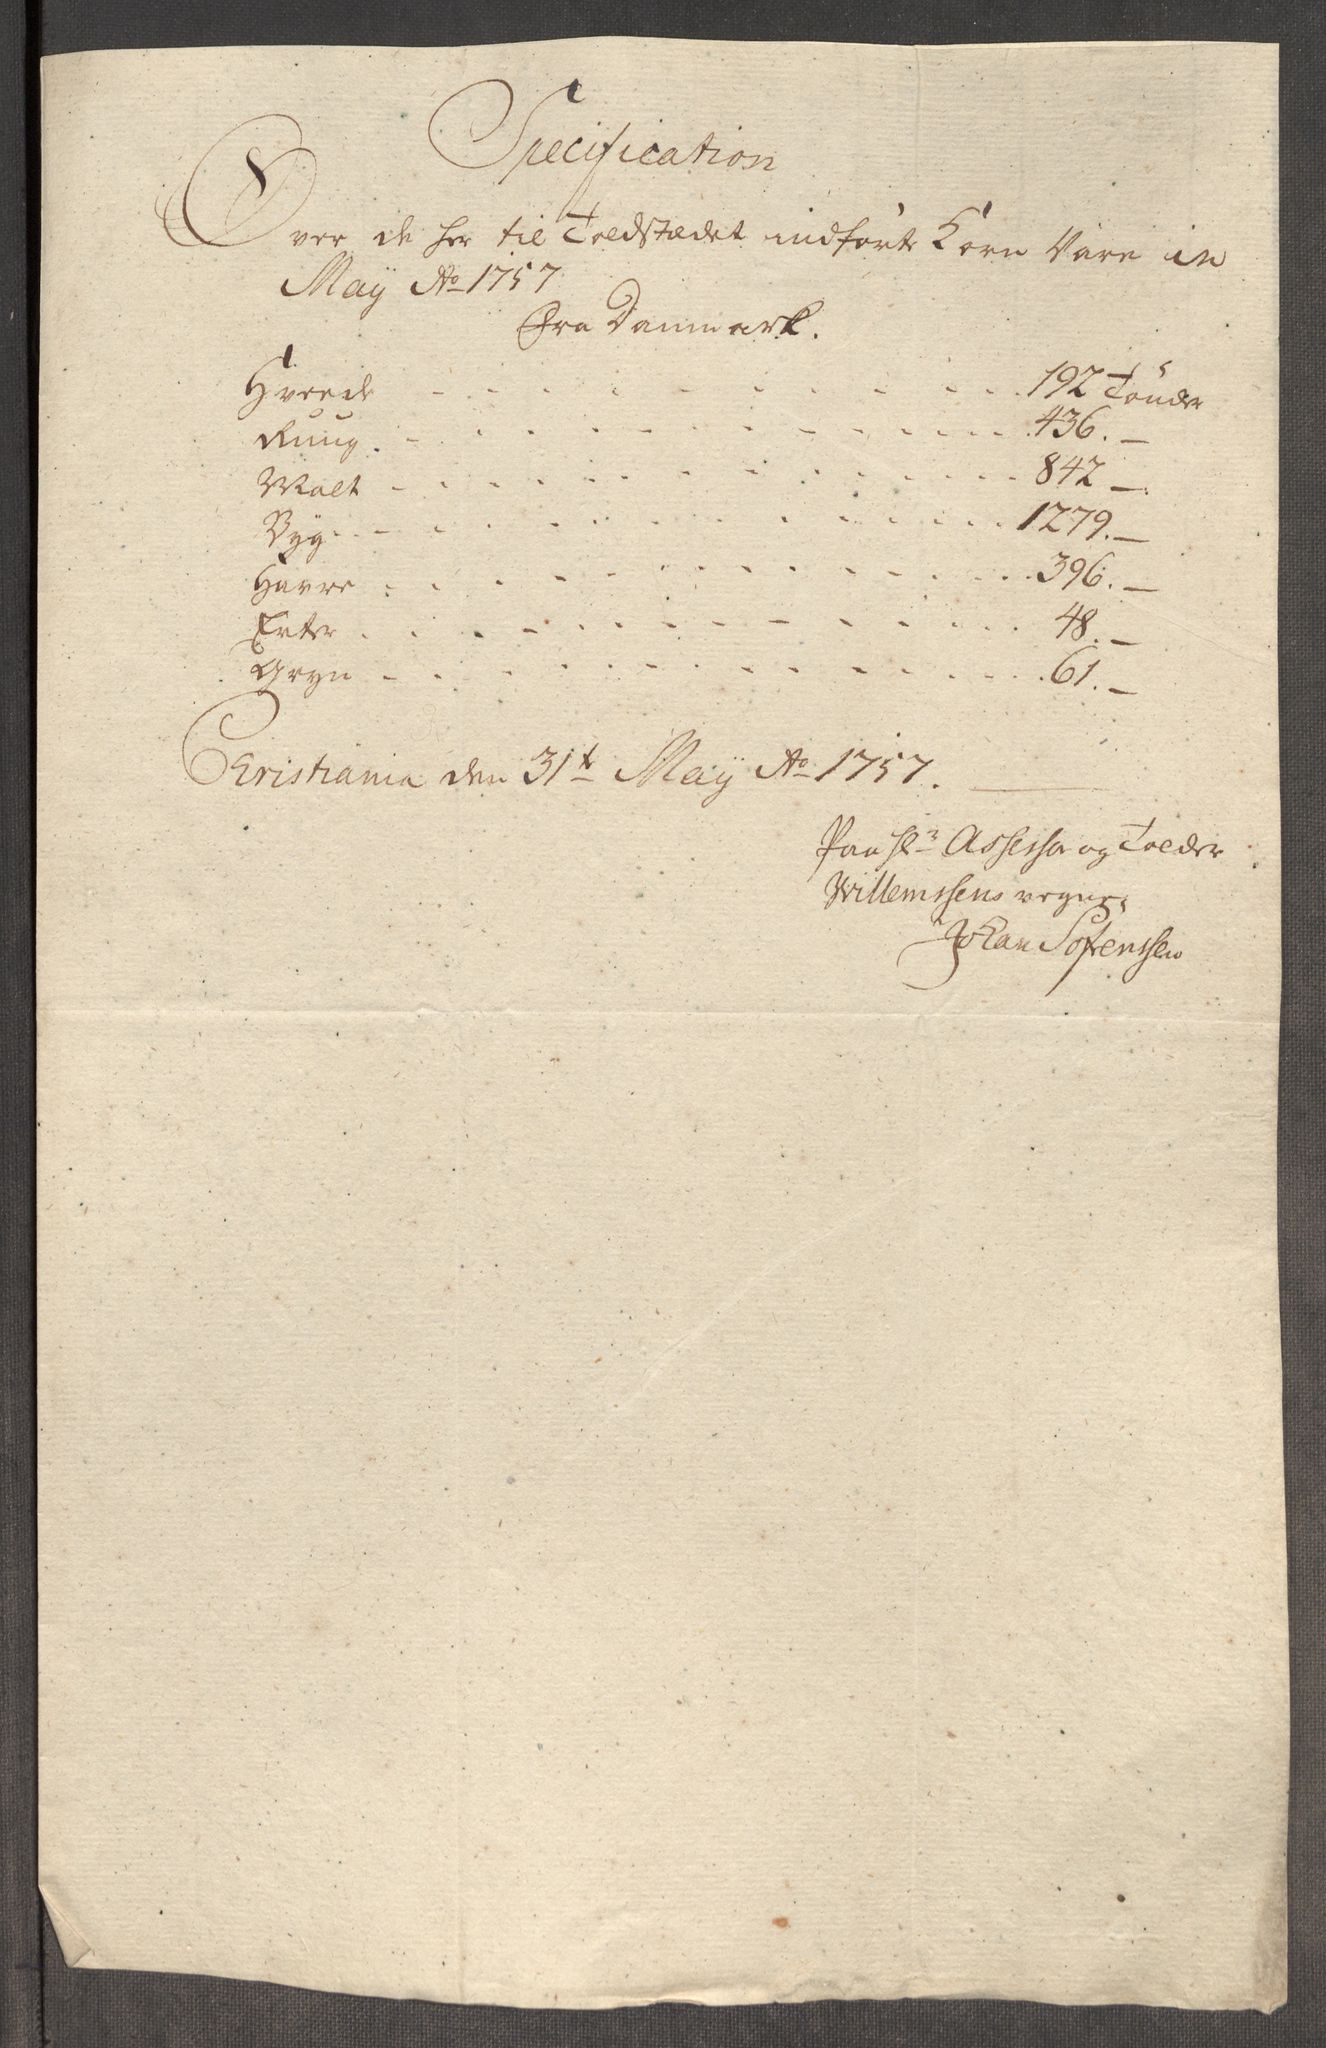 Specification
Over de her til Toldstædet indførte Korn Vare in
May Ao 1757
Fra Danmark.
Hvede - - - - - - - - - - 192 Tönder
Ruug - - - - - - - - - - 436. —
Malt - - - - - - - - - - 842 —
Byg - - - - - - - - - - 1279. —
Havre - - - - - - - - - - 396. —
Erter - - - - - - - - - - 48. —
Gryn - - - - - - - - - - 61. —
Cristiania den 31t May Ao 1757.
Paa Hr Assessor og Tolder
Willemssens vegne,
Johan Sörenssen